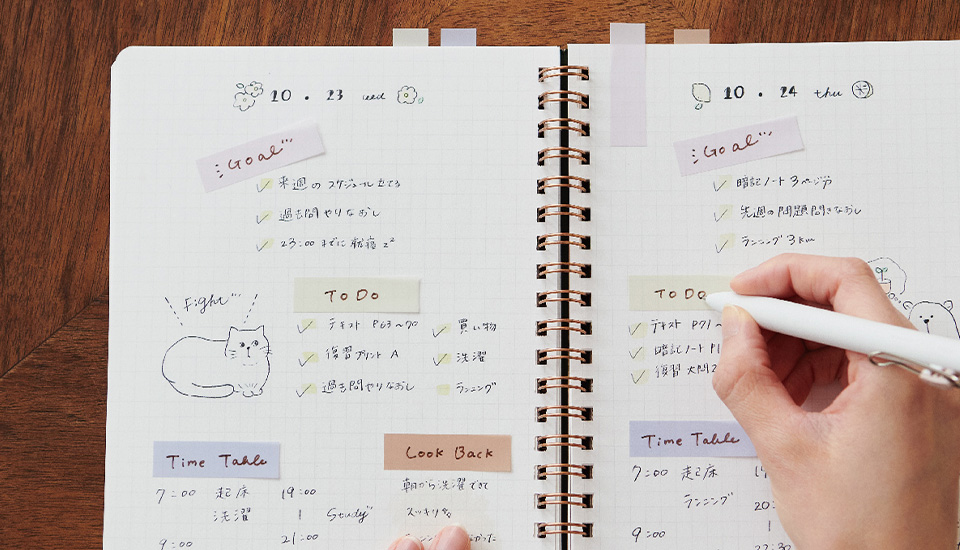 10 . 23 wed
Goal
来週のスケジュール立てる
過去問やりなおし
23:00 までに就寝 zz
Fight
To Do
テキスト P63~70
復習プリント A
過去問やりなおし
買い物
洗濯
ランニング
Time Table
7:00 起床
洗濯
9:00
19:00
Study
21:00
Look Back
朝から洗濯できて
スッキリ
10 . 24 thu
Goal
暗記ノート 3ページ分
先週の問題聞きなおし
ランニング 3km
To Do
テキスト P71~
暗記ノート P1
復習 大問2
Time Table
7:00 起床
ランニング
9:00
20:
22:30